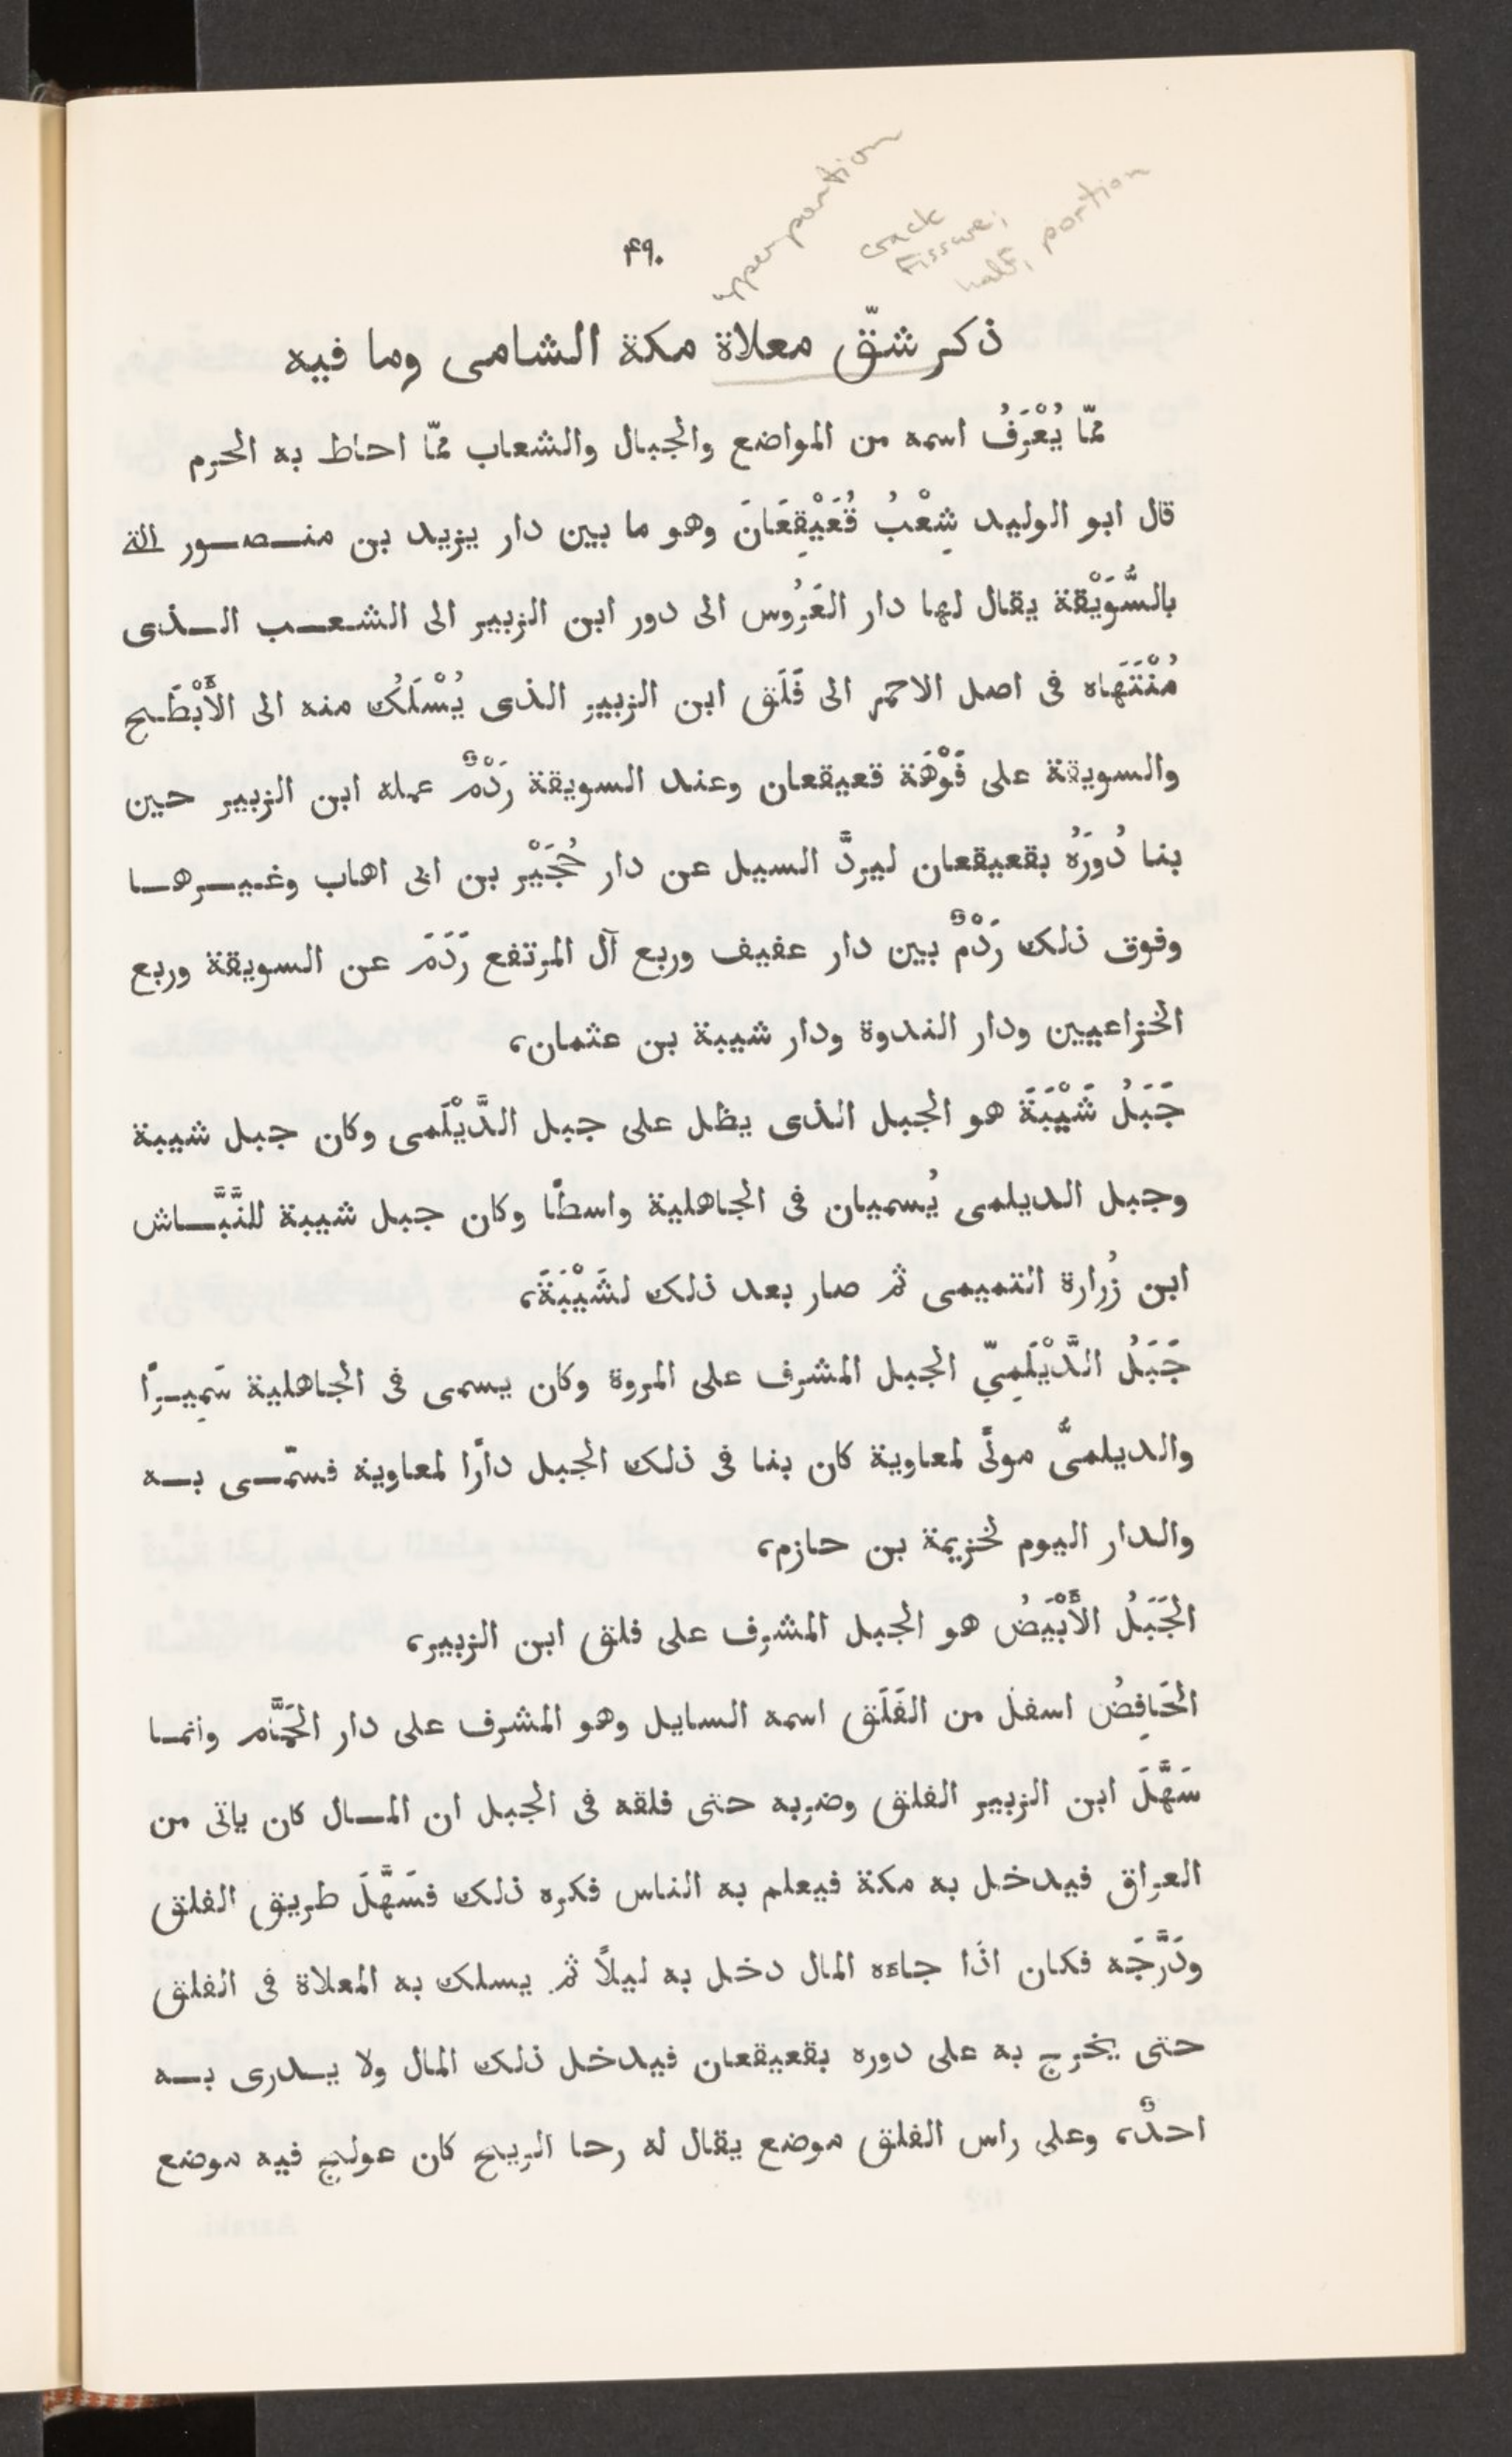 upper portion
crack
Fissure;
half, portion
۴۹۰
ذكر شقّ معلاة مكة الشامى وما فيه
ممّا يُعْرَفُ اسمه من المواضع والجبال والشعاب ممّا احاط به الحرم
قال ابو الوليد شِعْبُ قُعَيْقِعَانَ وهو ما بين دار يزيد بن منصور التى
بالسُّوَيْقة يقال لها دار العَرُوس الى دور ابن الزبير الى الشعب الذى
مُنْتَهَاه فى اصل الاحمر الى فَلَق ابن الزبير الذى يُسْلَكُ منه الى الأَبْطَح
والسويقة على فَوْهَة قعيقعان وعند السويقة رَدْمٌ عمله ابن الزبير حين
بنا دُورَهُ بقعيقعان ليردَّ السيل عن دار حُجَيْر بن ابى اهاب وغيرها
وفوق ذلك رَدْمٌ بين دار عفيف وربع آل المرتفع رَدَمَ عن السويقة وربع
الخزاعيين ودار الندوة ودار شيبة بن عثمان،
جَبَلُ شَيْبَةَ هو الجبل الذى يظل على جبل الدَّيْلَمى وكان جبل شيبة
وجبل الديلمى يُسميان فى الجاهلية واسطًا وكان جبل شيبة للنَّبَّاش
ابن زُرارة التميمى ثم صار بعد ذلك لشَيْبَةَ،
جَبَلُ الدَّيْلَمِىّ الجبل المشرف على المروة وكان يسمى فى الجاهلية سَمِيرًا
والديلمىُّ مولًى لمعاوية كان بنا فى ذلك الجبل دارًا لمعاوية فسمّى به
والدار اليوم لخزيمة بن حازم،
الجَبَلُ الأَبْيَضُ هو الجبل المشرف على فلق ابن الزبير،
الحَافِضُ اسفل من الفَلَق اسمه السايل وهو المشرف على دار الحَمَّام وانما
سَهَّلَ ابن الزبير الفلق وضربه حتى فلقه فى الجبل ان المال كان ياتى من
العراق فيدخل به مكة فيعلم به الناس فكره ذلك فسَهَّلَ طريق الفلق
ودَرَّجَه فكان اذا جاءه المال دخل به ليلًا ثم يسلك به المعلاة فى الفلق
حتى يخرج به على دوره بقعيقعان فيدخل ذلك المال ولا يدرى به
احدٌ، وعلى راس الفلق موضع يقال له رحا الريح كان عولج فيه موضع